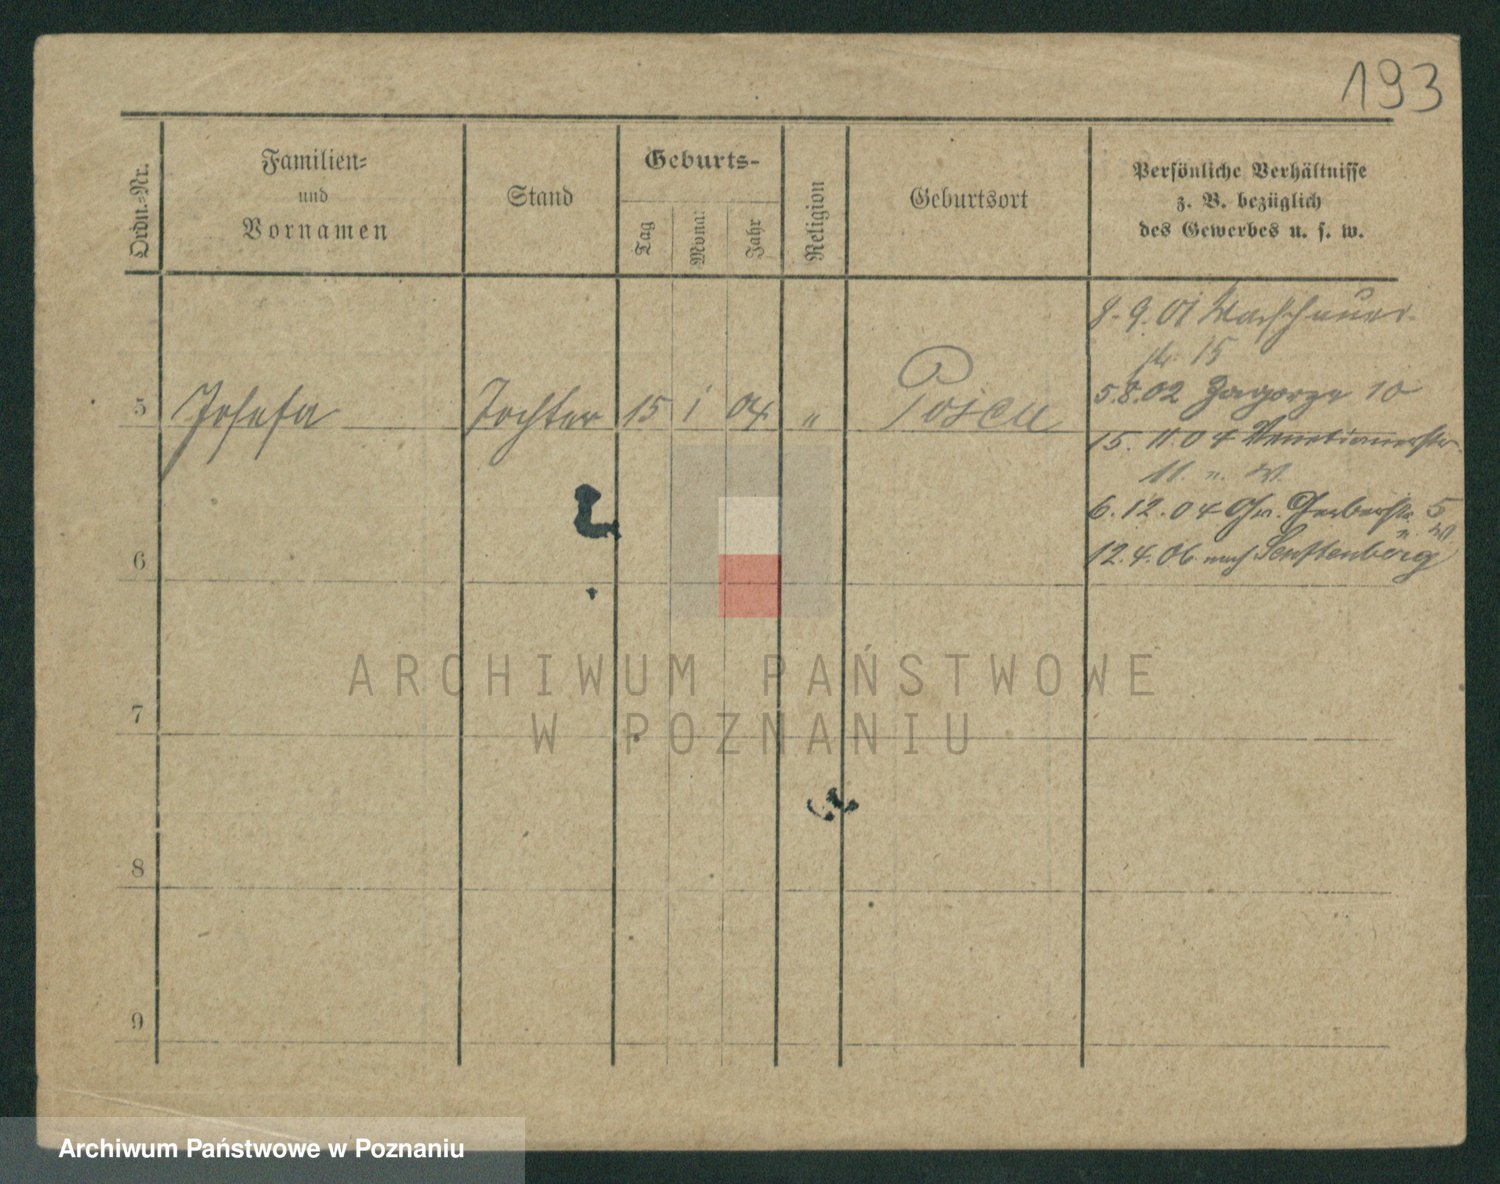 193
Ordn.-Nr.
Familien-
und
Vornamen
Stand
Geburts-
Tag
Monat
Jahr
Religion
Geburtsort
Persönliche Verhältnisse
z. B. bezüglich
des Gewerbes u. s. w.
8.9.01 Warschauer-
str. 15
5 Josefa Tochter 15 1 04 " Posen
5.8.02 Zagorze 10
15.11.04 Venetianerstr
11. n. W.
6.12.04 Gr. Gerberstr. 5
n. W
12.4.06 nach Senftenberg
6
7
8
9
ARCHIWUM PAŃSTWOWE
W POZNANIU
Archiwum Państwowe w Poznaniu